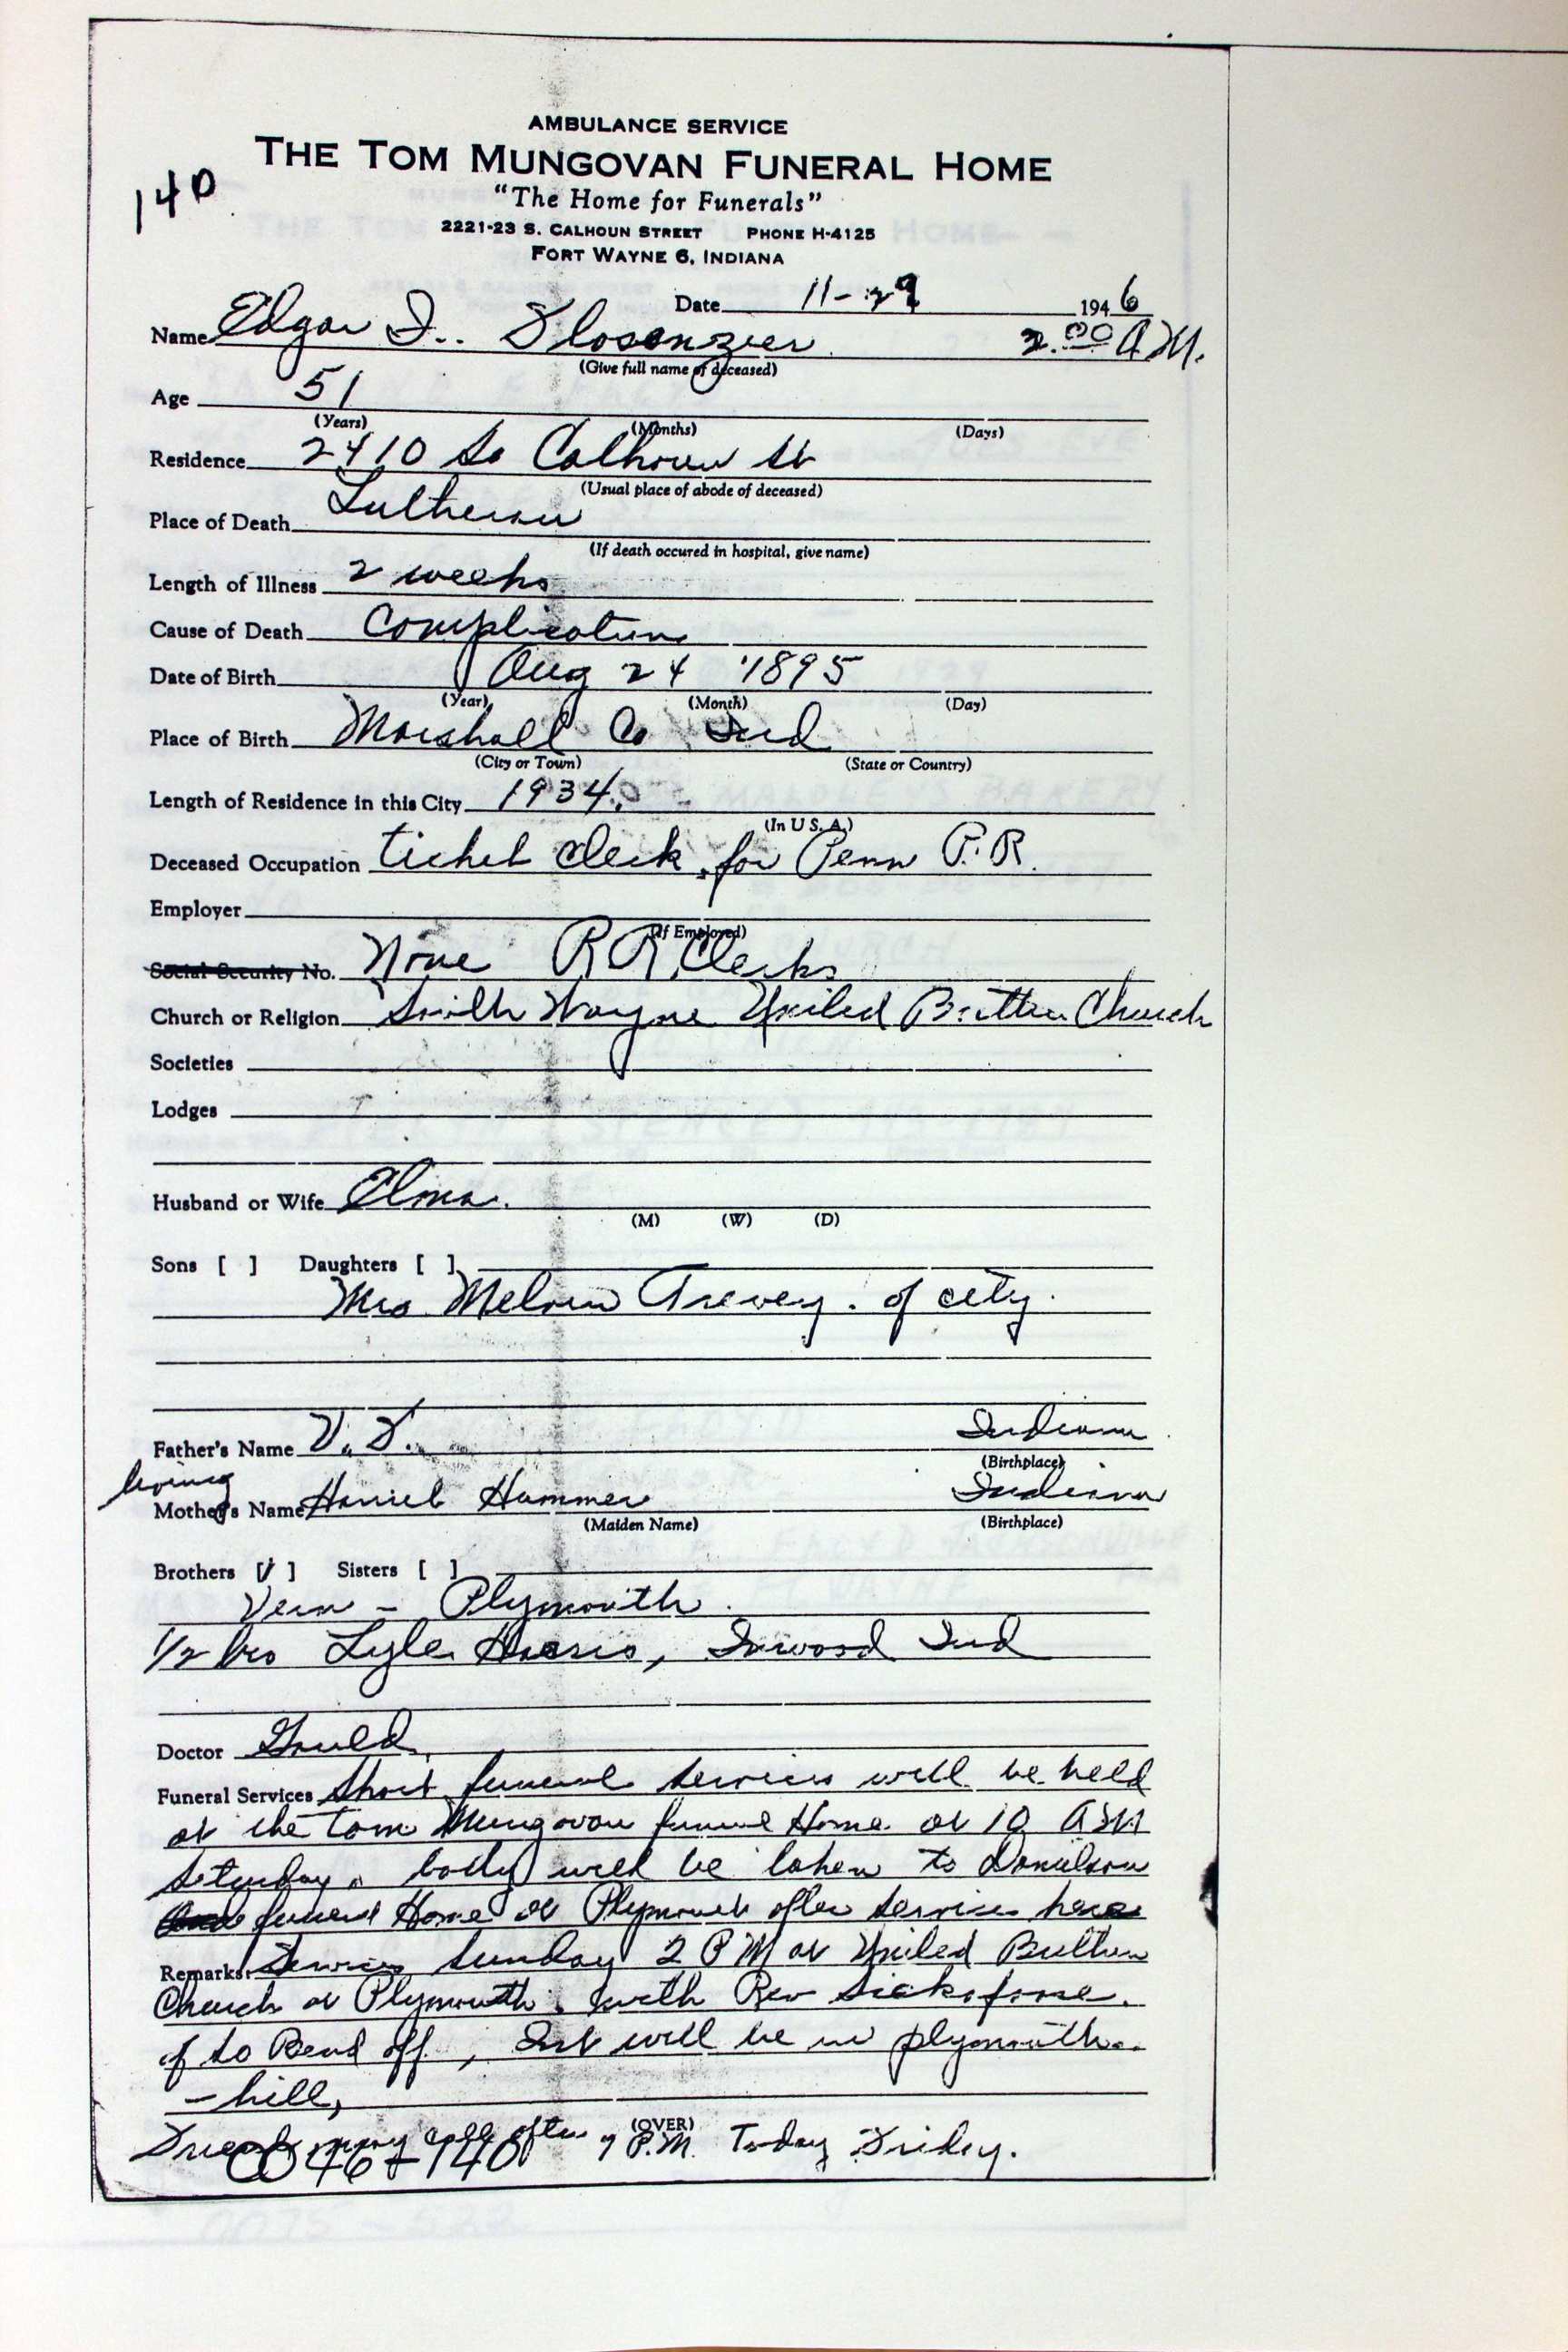 AMBULANCE SERVICE
THE TOM MUNGOVAN FUNERAL HOME
140
"The Home for Funerals"
2221-23 S. CALHOUN STREET PHONE H-4125
FORT WAYNE 6, INDIANA
Date 11-29 1946
Name Edgar 2.00 A.M.
(Give full name of deceased)
Age 51
(Years) (Months) (Days)
Residence 2410 So Calhoun St
(Usual place of abode of deceased)
Place of Death Lutheran
(If death occured in hospital, give name)
Length of Illness 2 weeks
Cause of Death Complications
Date of Birth Aug 24 1895
(Year) (Month) (Day)
Place of Birth Marshall Co Ind
(City or Town) (State or Country)
Length of Residence in this City 1934.
(In U.S.A.)
Deceased Occupation ticket clerk for Penn R.R.
Employer
(If Employed)
Social Security No. None R R Clerks
Church or Religion South Wayne United Brethren Church
Societies
Lodges
Husband or Wife
(M) (W) (D)
Sons [ ] Daughters [ ]
Mrs. Melvin of city.
Father's Name Indiana
(Birthplace)
living
Mother's Name Hummer Indiana
(Maiden Name) (Birthplace)
Brothers [/ ] Sisters [ ]
Vern - Plymouth.
1/2 bro Lyle Inwood Ind
Doctor Gould
Funeral Services Short funeral services will be held
at the Tom Mungovan funeral Home at 10 A M
Saturday. body will be taken to
funeral Home at Plymouth after services here
Remarks: Services Sunday 2 P M at United Brethren
Church at Plymouth. with Rev
of So Bend off, Int will be in plymouth.
- hill,
(OVER)
Friends may call after 7 P.M. Today Friday.
0046-140